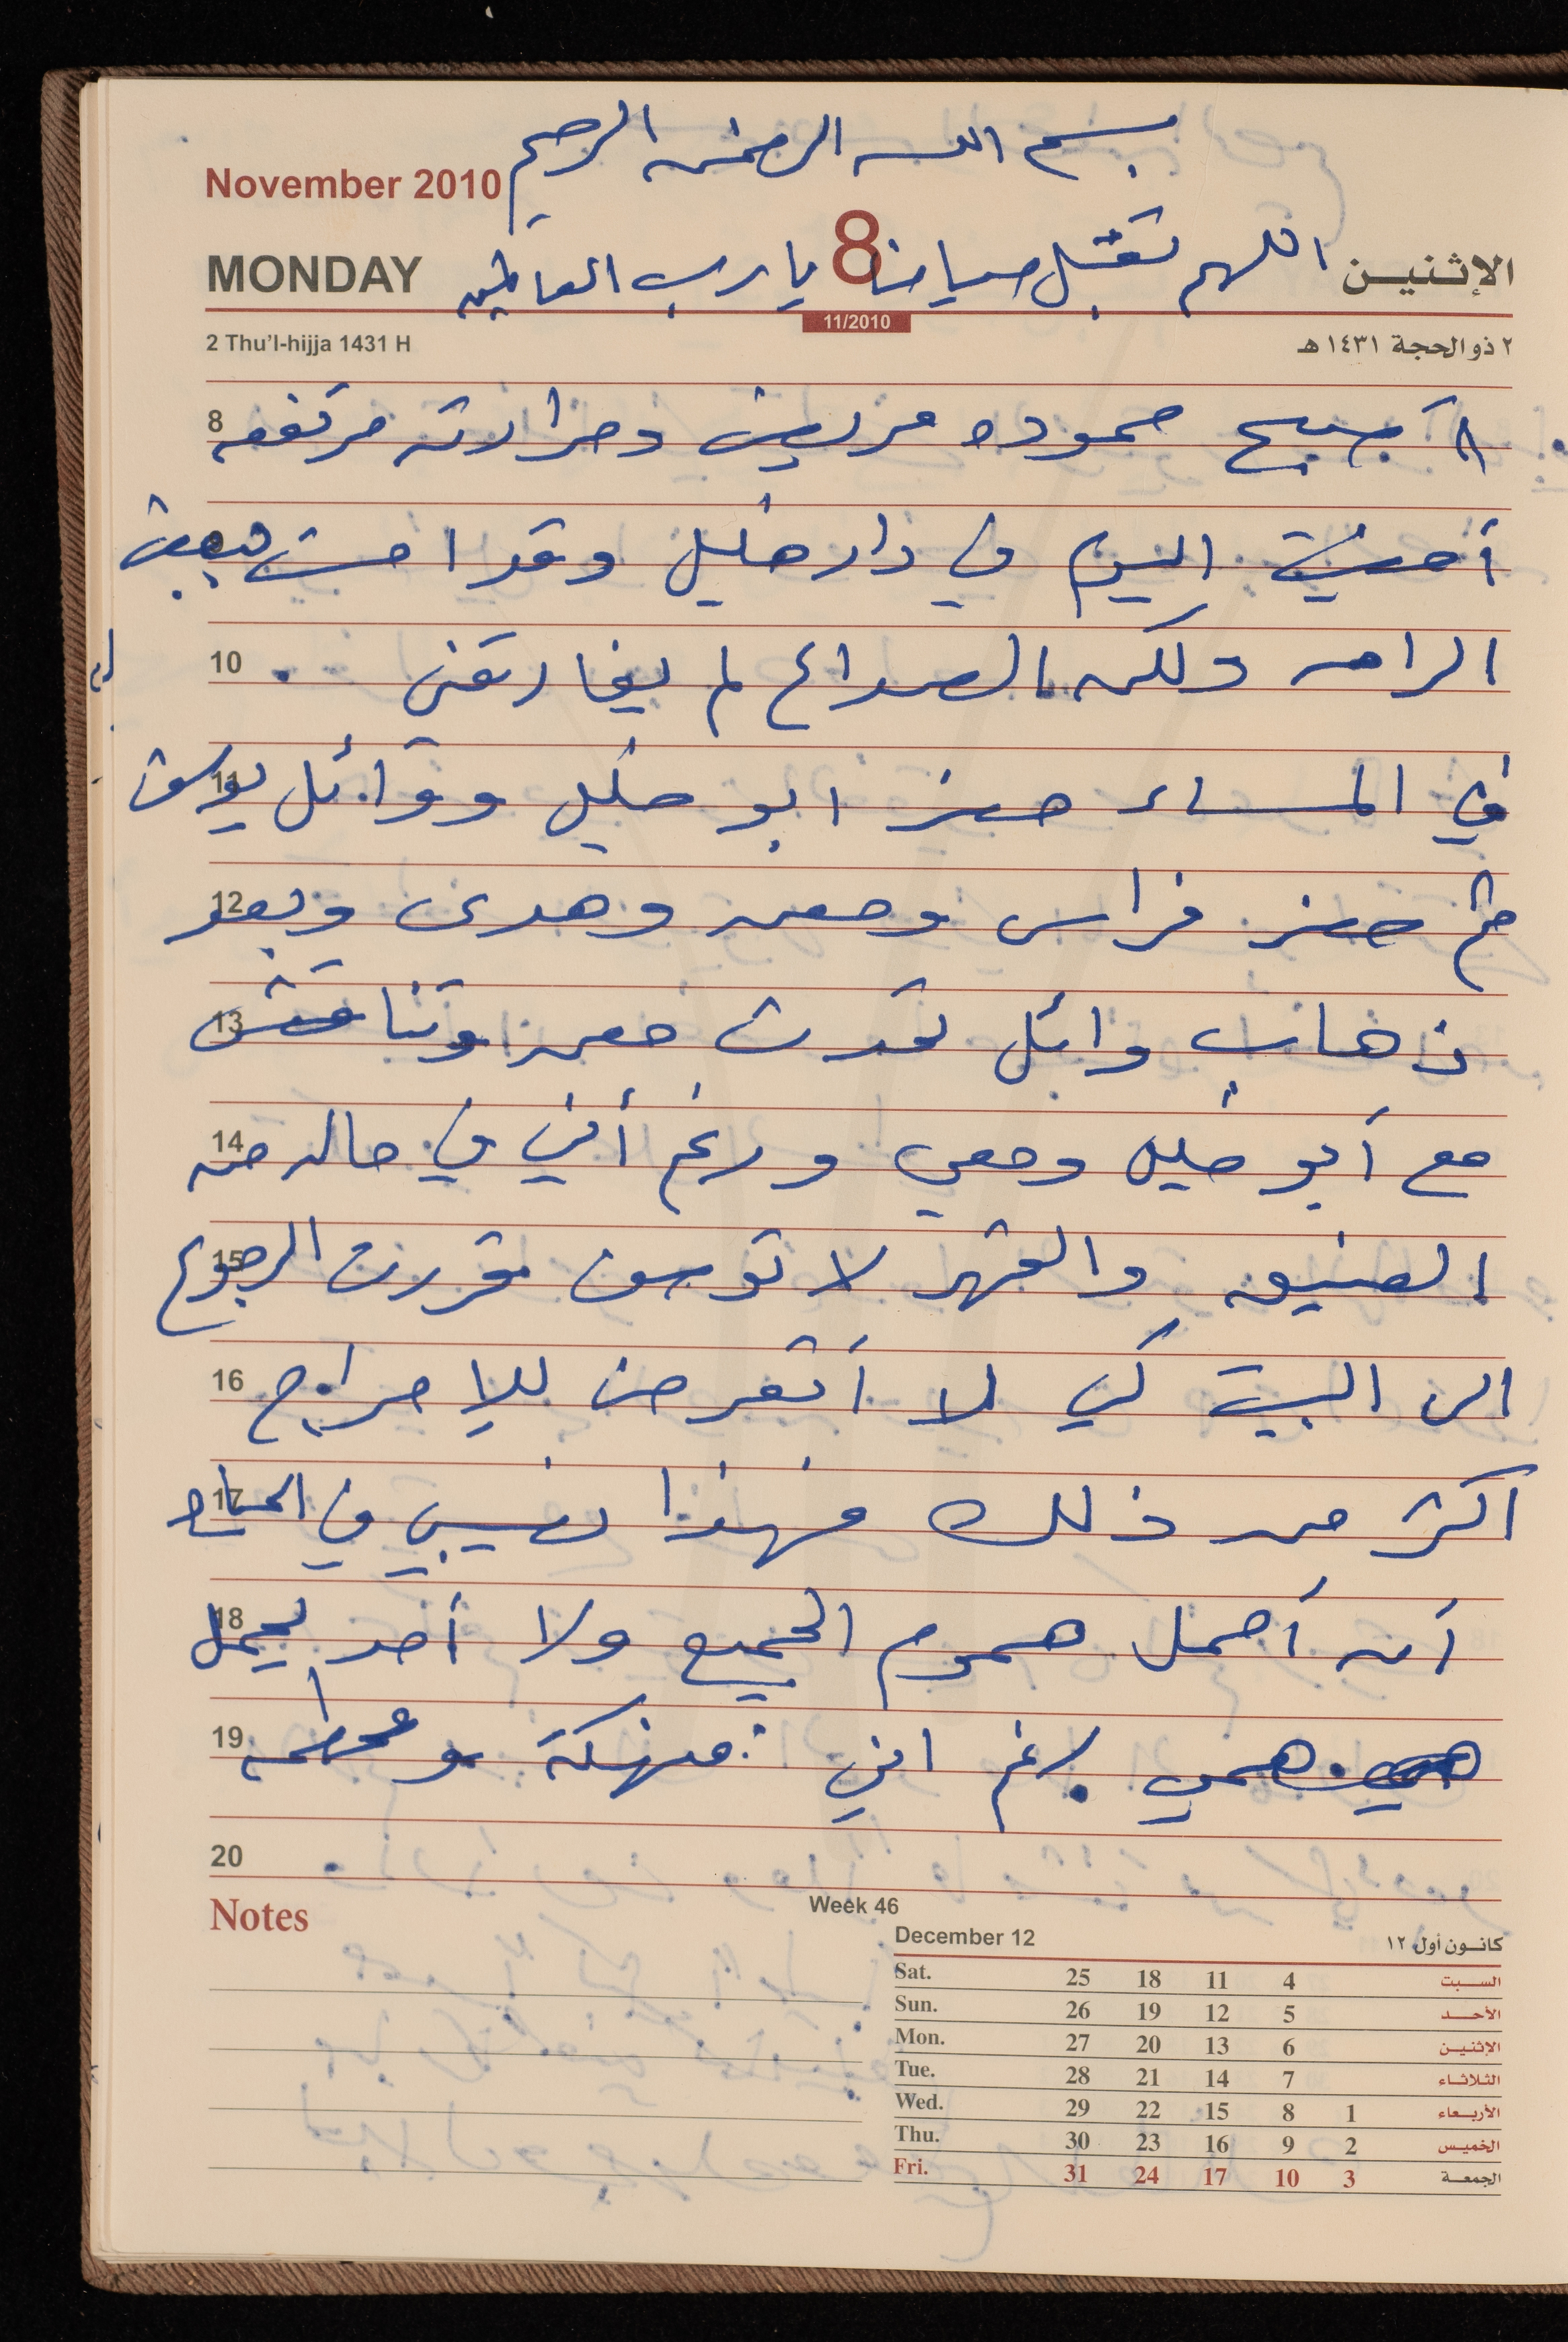 بسم الله الرحمن الرحيم
November 2010
MONDAY 8 الإثنين
اللهم تقبل صيامنا يا رب العالمين
11/2010
2 Thu'l-hijja 1431 H ٢ ذو الحجة ١٤٣١ هـ
8 حموده مريض وحرارته مرتفعه
أمضيت اليوم في دار خليل وقد احسست ببعض
10 الراحه ولكن الصداع لم يفارقني
11 في المساء حضر ابو خليل ووائل يوسف
12 ثم حضر فراس ومعن وهدى وبعد
13 ذهاب وائل تحدث معن وتناقش
14 مع أبو خليل ومعي ورغم أنني في حاله من
15 الضيق والقهر لا توصف قررت الرجوع
16 الى البيت كي لا أتعرض للإحراج
17 اكثر من ذلك فهذا نصيبي في الحياه
18 أن أحمل هموم الجميع ولا أحد يحمل
19 همي برغم انني منهكة
20
Notes
Week 46
December 12 كانون أول ١٢
Sat. 25 18 11 4 السبت
Sun. 26 19 12 5 الأحد
Mon. 27 20 13 6 الإثنين
Tue. 28 21 14 7 الثلاثاء
Wed. 29 22 15 8 1 الأربعاء
Thu. 30 23 16 9 2 الخميس
Fri. 31 24 17 10 3 الجمعة